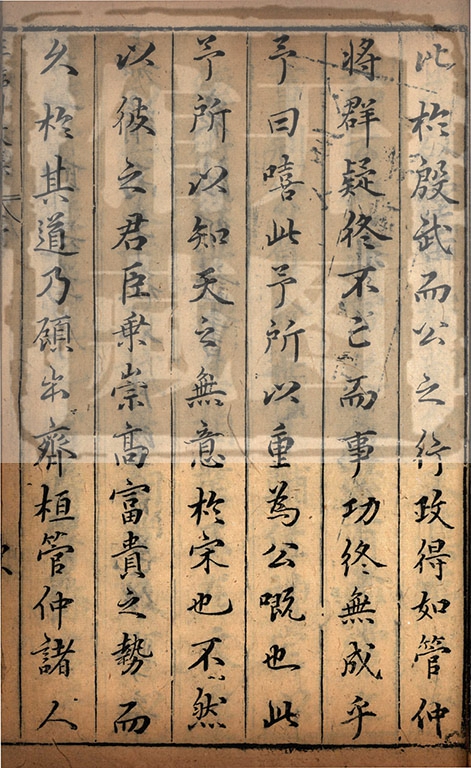 比於殷武而公之行政得如管仲
將群疑終不亡而事功終無成乎
予曰嘻此予所以重為公嘅也此
予所以知天之無意於宋也不然
以彼之君臣乗崇高富貴之勢而
久於其道乃顧出齊桓管仲諸人